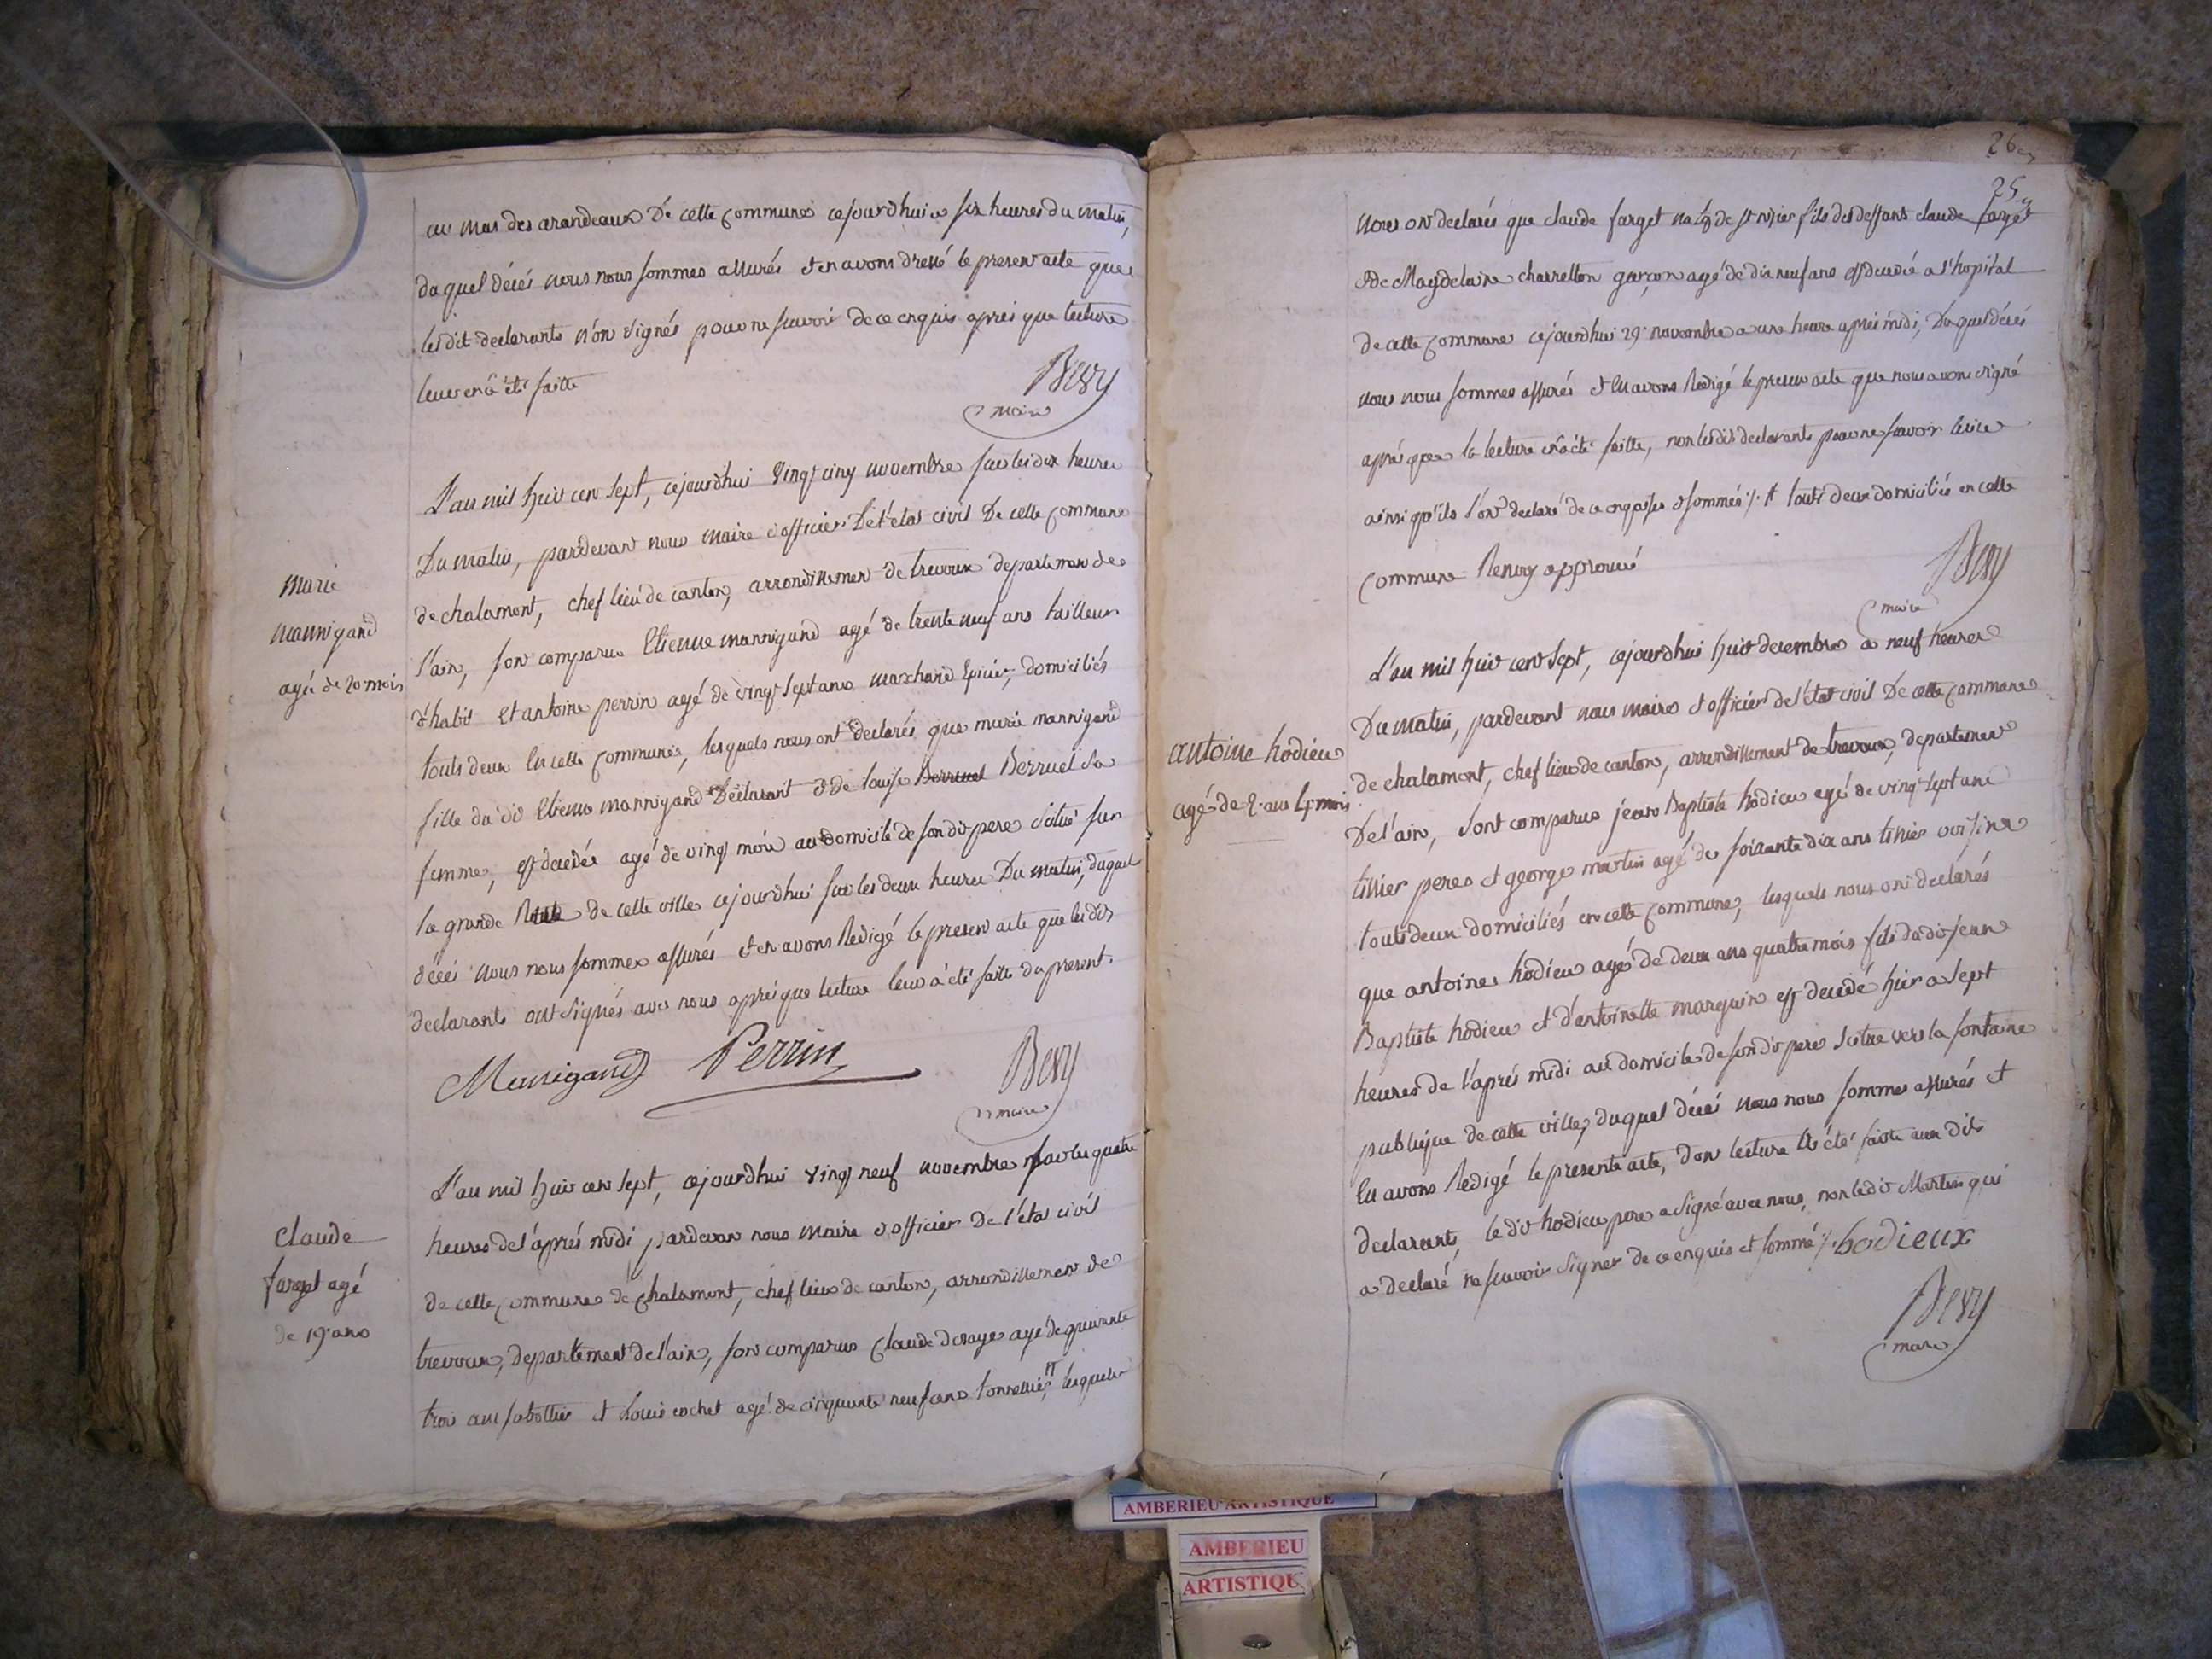 au mas des arandeaux De cette commune cejourdhui a six heures du matin,
duquel décés nous nous sommes assurés et en avons dressé le present acte que
lesdit declarants n'on signés pour ne savoir de ce enquis aprés que lecture
leur en à été faitte
Bevy
maire
L'an mil huit cen sept, cejourdhui vingt cinq novembre sur les dix heures
marie
mannigand
agée de 20 mois
Du matin, pardevant nous maire et officier De l'etat civil De cette commune
de chalamont, chef lieu de canton, arrondissement de trevoux departement de
l'ain, son comparus Etienne mannigand agé de trente neuf ans tailleur
d'habit Et antoine perrin agé de vingt sept ans marchand Epicier, domiciliés
touts deux En cette commune, lesquels nous ont declarés que marie mannigand
fille du dit Etienne mannigand Déclarant et de louise Berruel Berruel sa
femme, est decedée agé de vingt mois au domicile de son dit pere situé sur
la grande Route de cette ville cejourdhui sur les deux heures Du matin, duquel
décés nous nous sommes assurés et en avons Redigé le present acte que lesdits
declarants ont signés avec nous aprés que lecture leur à été faitte du present.
Mennigand Perrin
Bevy
maire
L'an mil huit cen sept, cejourdhui vingt neuf novembre sur les quatre
claude
farget agé
de 19 ans
heures de l'aprés midi pardevant nous maire et officier De l'état civil
de cette commune de chalamont, chef lieu de canton, arrondissement de
trevoux, departement de l'ain, son comparus Claude agé de quarante
trois ans sabottier et Louis cochet agé de cinquante neuf ans tonnellier, lesquels
26
25
nous on declarés que claude farget natif de st nizier fils des deffunts claude farget
et de Magdelaine charretton garçon agé de dix neuf ans est decedé a l'hopital
de cette commune cejourdhui 29 novembre a une heure aprés midi, Duquel décés
nous nous sommes assurés et En avons Redigé le present acte que nous avons signé
aprés que la lecture en à été faitte, non lesdits declarants pour ne savoir Ecrire
ainsi qu'ils l'ont declaré de ce enquis et sommés ⁒ touts deux domiciliés en cette
commune Renvoy approuvé
Bevy
maire
L'an mil huit cent sept, cejourdhui huit decembre a neuf heures
antoine hodieu
agé de 2 ans 4 mois
Du matin, pardevant nous maire et officier de l'état civil De cette commune
de chalamont, chef lieu de canton, arrondissement de trevoux, departement
De l'ain, sont comparus jean Baptiste hodieu agé de vingt sept ans
tissier pere et george martin agé de soixante dix ans tissier voisin
touts deux domiciliés en cette commune, lesquels nous on declarés
que antoine hodieu agé de deux ans quatre mois fils du dit jean
Baptiste hodieu et d'antoinette marguin est decedé hier a sept
heures de l'aprés midi au domicile de son dit pere située vers la fontaine
publique de cette ville, duquel décés nous nous sommes assurés et
En avons Redigé le present acte, dont lecture a été faitte aux dits
declarants, le dit hodieu pere a signé avec nous, non ledit Martin qui
a declaré ne savoir signer de ce enquis et sommé ⁒ hodieux
Bevy
maire
AMBERIEU ARTISTIQUE
AMBERIEU
ARTISTIQU